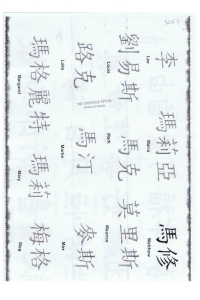 李 瑪莉亞 馬修
Lee Maria Matthew
劉易斯 馬克 莫里斯
Louis Mark Maurice
路克 馬汀 麥斯
Luke Max
瑪格麗特 瑪莉 梅格
Margaret Mary Meg